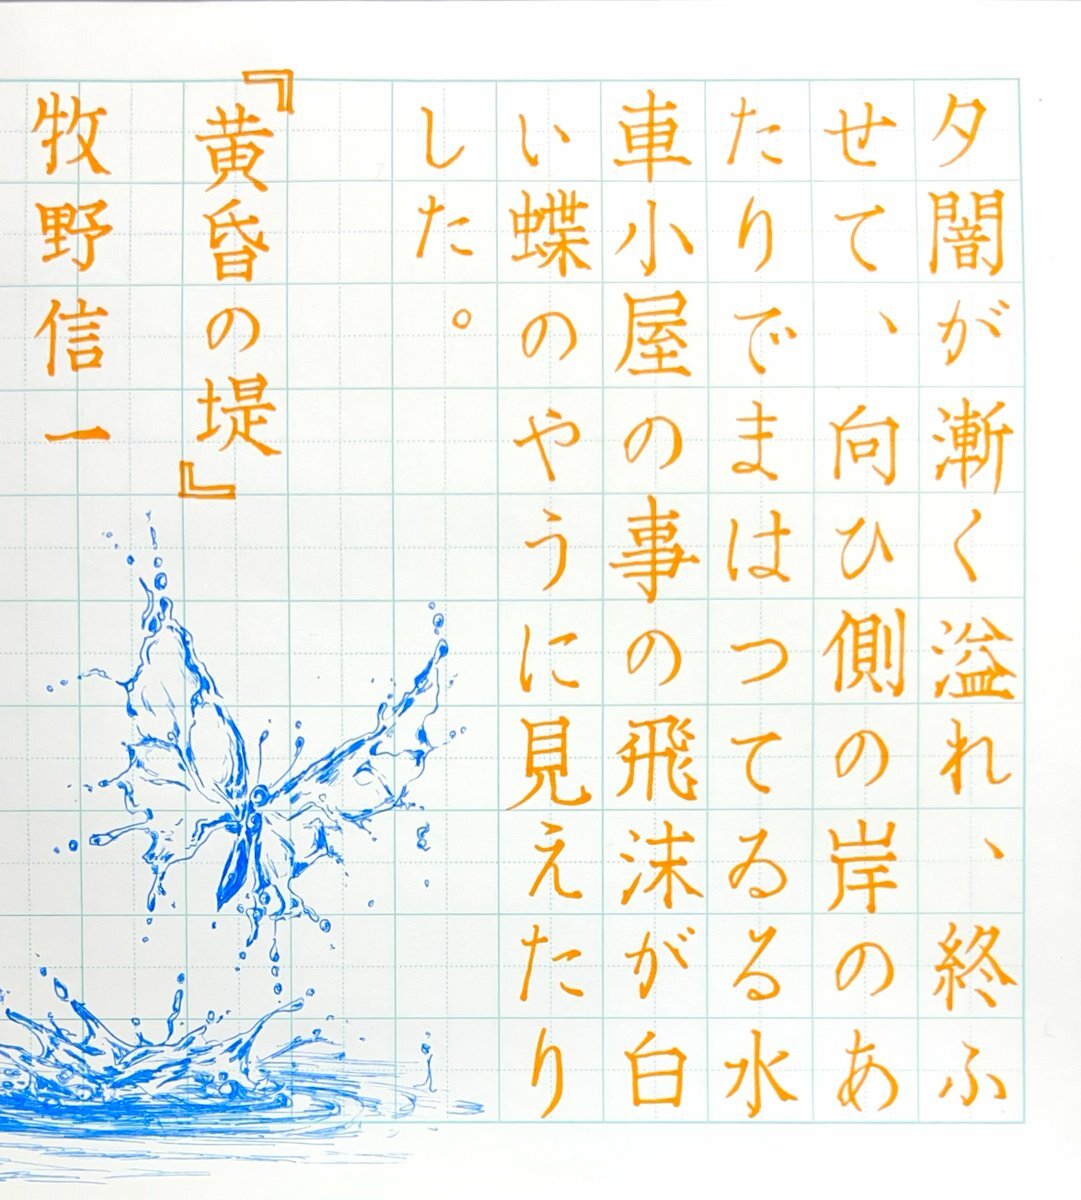 夕闇が漸く溢れ、終ふ
せて、向ひ側の岸のあ
たりでまはつてゐる水
車小屋の事の飛沫が白
い蝶のやうに見えたり
した。
『黄昏の堤』
牧野信一